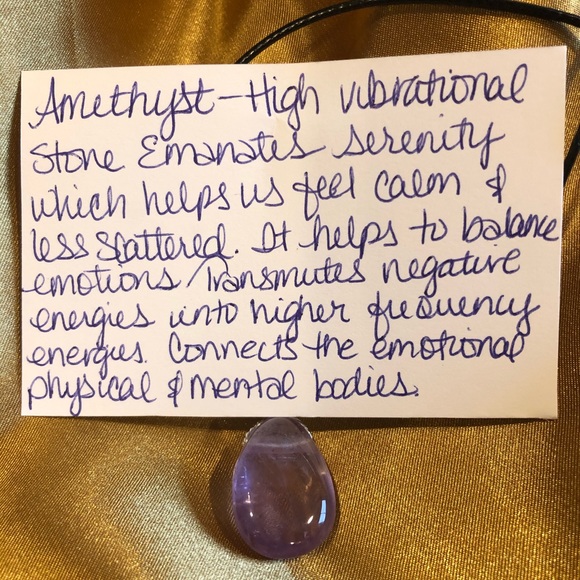 Amethyst-High vibrational
Stone Emanates serenity
which helps us feel calm &
less scattered. It helps to balance
emotions/Transmutes negative
energies into higher frequency
energies. Connects the emotional
physical & mental bodies.